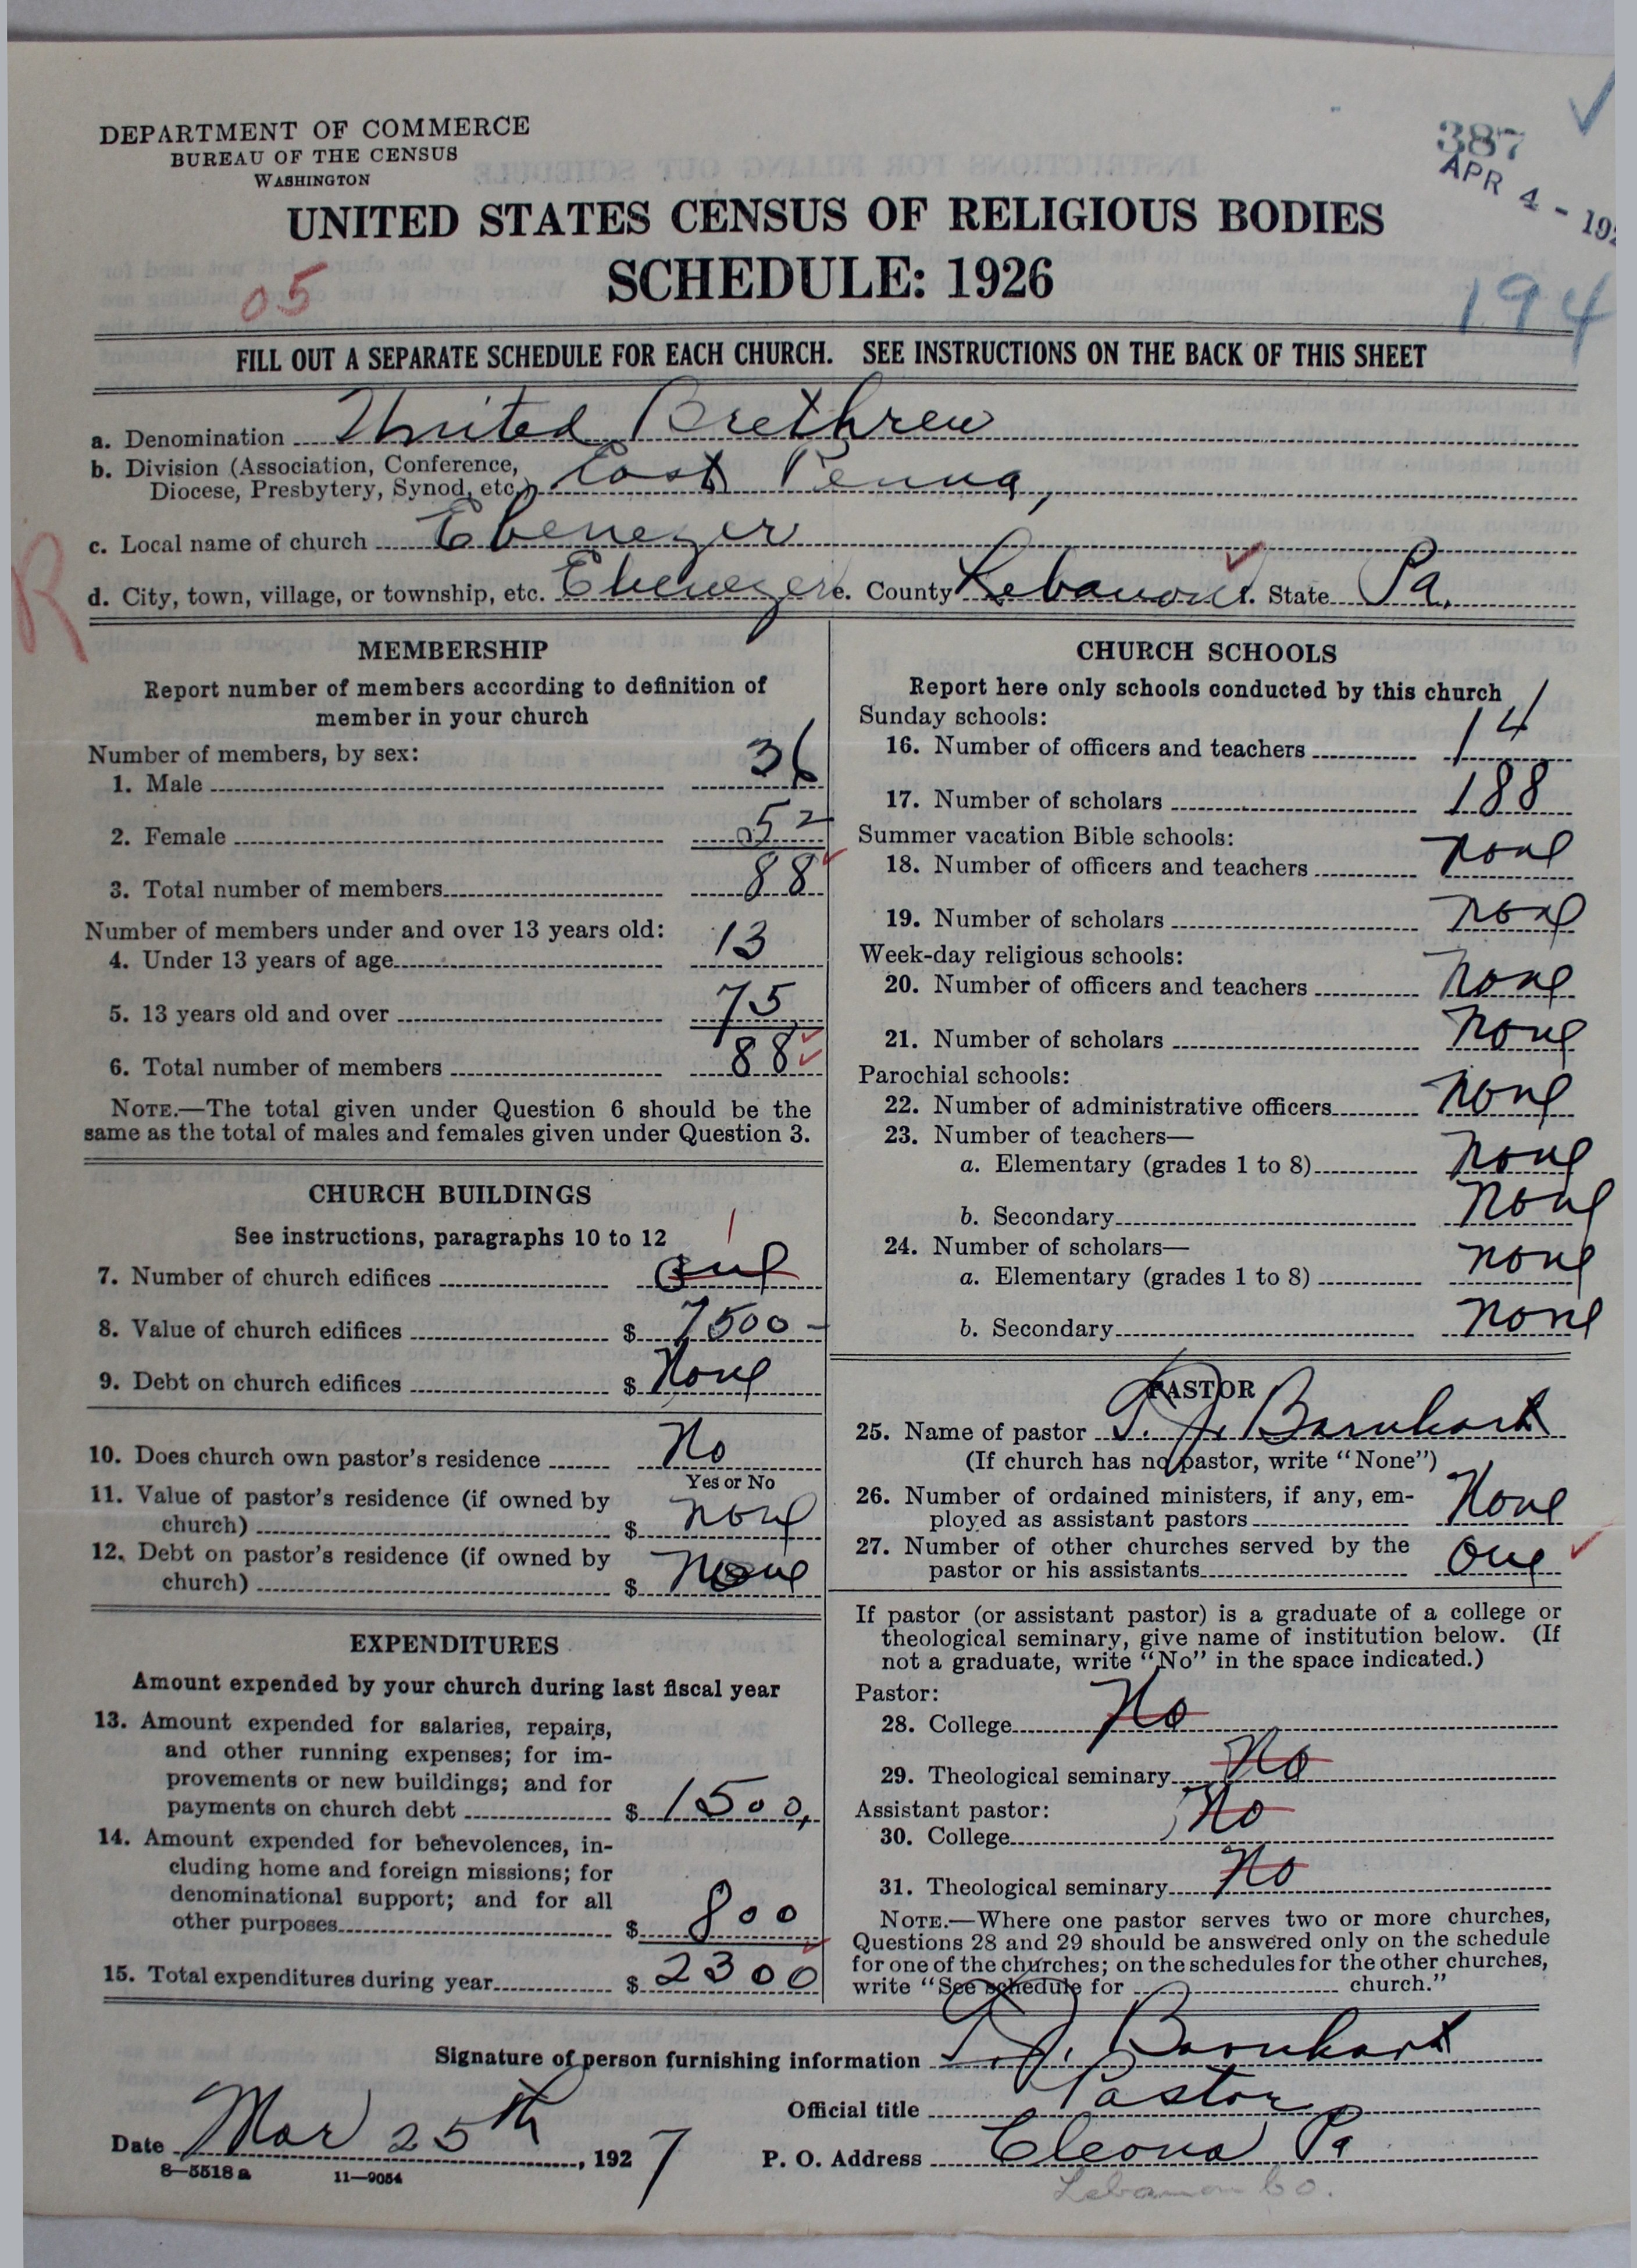 DEPARTMENT OF COMMERCE
BUREAU OF THE CENSUS
WASHINGTON
387
APR 4 - 192
UNITED STATES CENSUS OF RELIGIOUS BODIES
SCHEDULE: 1926
05
194
FILL OUT A SEPARATE SCHEDULE FOR EACH CHURCH. SEE INSTRUCTIONS ON THE BACK OF THIS SHEET
a. Denomination United Brethren
b. Division (Association, Conference, Diocese, Presbytery, Synod, etc.) East Penna,
c. Local name of church Ebenezer
R
d. City, town, village, or township, etc. Ebenezer e. County Lebanon f. State Pa.
MEMBERSHIP
Report number of members according to definition of
member in your church
Number of members, by sex:
1. Male 36
2. Female 52
3. Total number of members 88
Number of members under and over 13 years old:
4. Under 13 years of age 13
5. 13 years old and over 75
6. Total number of members 88
NOTE.—The total given under Question 6 should be the
same as the total of males and females given under Question 3.
CHURCH BUILDINGS
See instructions, paragraphs 10 to 12
1
7. Number of church edifices One
8. Value of church edifices $ 7500 -
9. Debt on church edifices $ None
10. Does church own pastor's residence No
Yes or No
11. Value of pastor's residence (if owned by
church) $ none
12. Debt on pastor's residence (if owned by
church) $ None
EXPENDITURES
Amount expended by your church during last fiscal year
13. Amount expended for salaries, repairs,
and other running expenses; for im-
provements or new buildings; and for
payments on church debt $ 1500,
14. Amount expended for benevolences, in-
cluding home and foreign missions; for
denominational support; and for all
other purposes $ 800
15. Total expenditures during year $ 2300
CHURCH SCHOOLS
Report here only schools conducted by this church
Sunday schools:
16. Number of officers and teachers 14
17. Number of scholars 188
Summer vacation Bible schools:
18. Number of officers and teachers none
19. Number of scholars none
Week-day religious schools:
20. Number of officers and teachers none
21. Number of scholars none
Parochial schools:
22. Number of administrative officers none
23. Number of teachers—
a. Elementary (grades 1 to 8) none
b. Secondary none
24. Number of scholars—
a. Elementary (grades 1 to 8) none
b. Secondary none
PASTOR
25. Name of pastor I. J. Barnhart
(If church has no pastor, write "None")
26. Number of ordained ministers, if any, em-
ployed as assistant pastors None
27. Number of other churches served by the
pastor or his assistants One
If pastor (or assistant pastor) is a graduate of a college or
theological seminary, give name of institution below. (If
not a graduate, write "No" in the space indicated.)
Pastor:
28. College No
29. Theological seminary No
Assistant pastor:
30. College No
31. Theological seminary No
NOTE.—Where one pastor serves two or more churches,
Questions 28 and 29 should be answered only on the schedule
for one of the churches; on the schedules for the other churches,
write "See schedule for church."
Signature of person furnishing information I. J. Barnhart
Official title Pastor
Date Mar 25th, 1927
P. O. Address Cleona Pa
8—5518 a 11—9054
Lebanon Co.